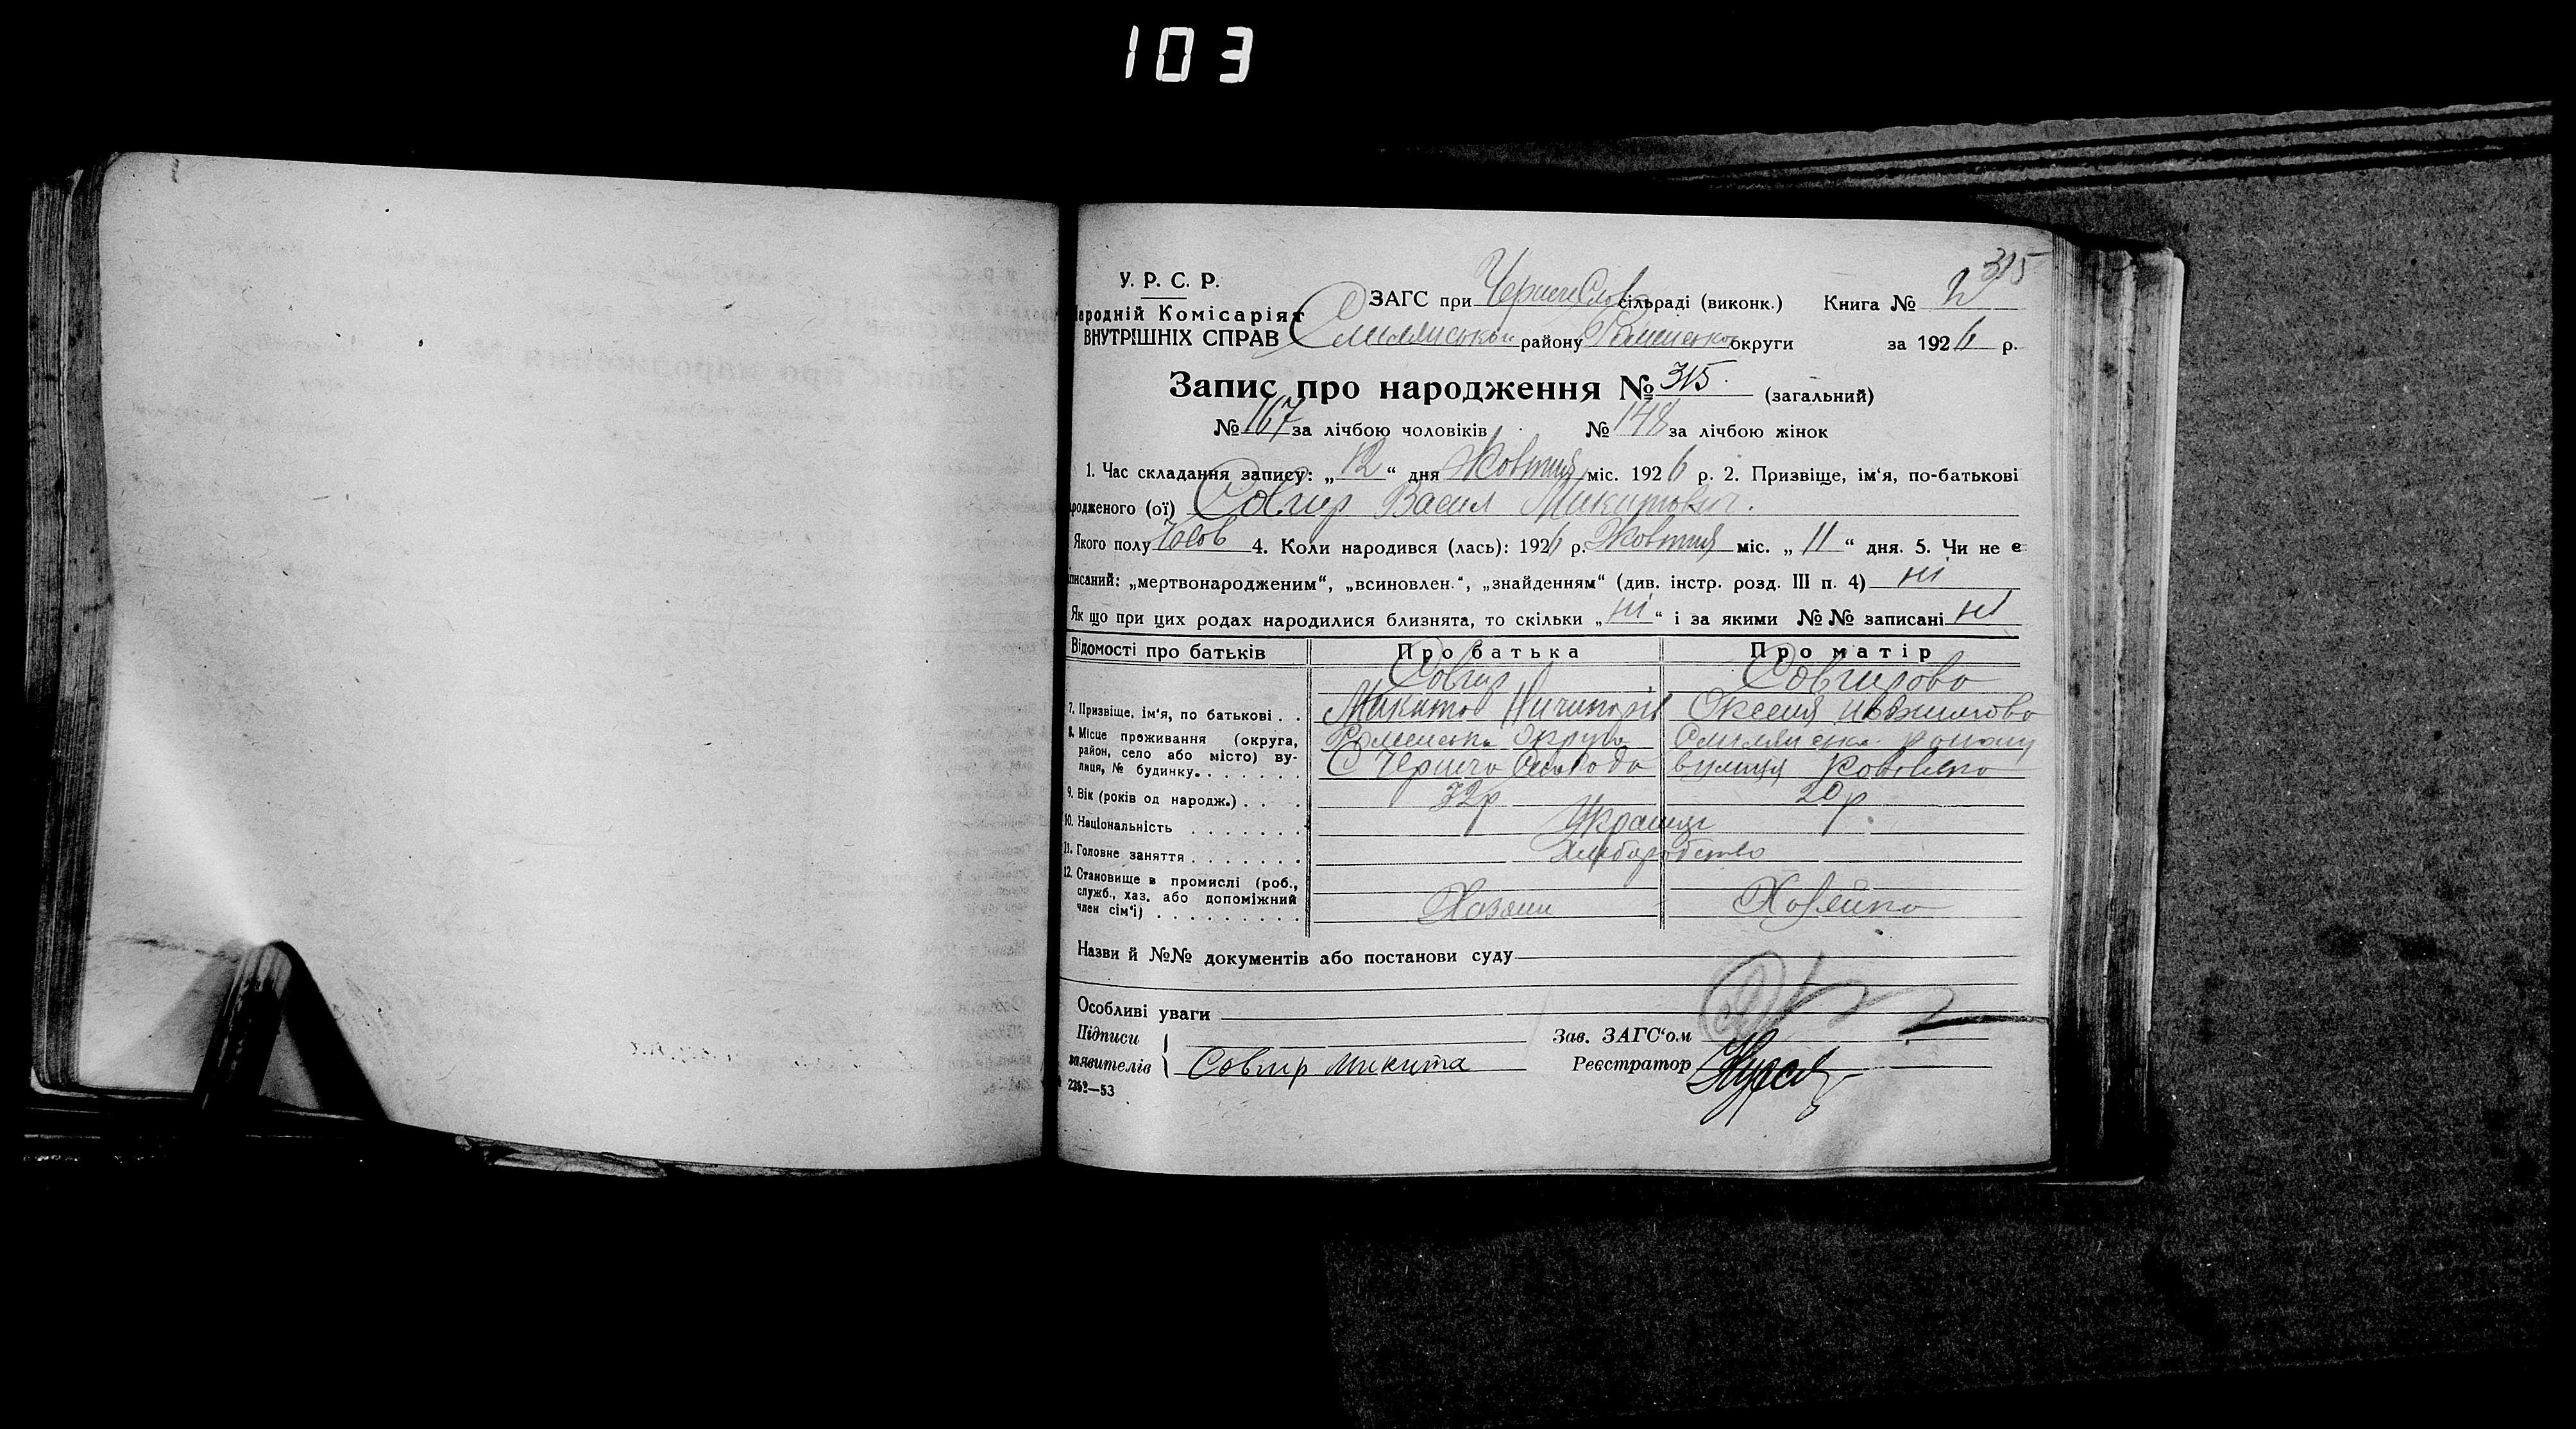 103
315
У. Р. С. Р.
Народній Комісаріят
ВНУТРІШНІХ СПРАВ
ЗАГС при сільраді (виконк.) Книга №
району округи за 1926 р.
Запис про народження № 315. (загальний)
№ 167 за лічбою чоловіків № 148 за лічбою жінок
1. Час складання запису: „12“ дня Жовтня міс. 1926 р. 2. Призвіще, ім‘я, по-батькові
родженого (ої) Совгир Васил Микитович.
Якого полу Чолов 4. Коли народився (лась): 1926 р. Жовтня міс. „11“ дня. 5. Чи не є
писаний: „мертвонародженим“, „всиновлен.“, „знайденням“ (див. інстр. розд. III п. 4) ні
Як що при цих родах народилися близнята, то скільки „ні“ і за якими №№ записані ні
Відомості про батьків Про батька Про матір
Совгир Совгирова
7. Призвіще, ім‘я, по батькові . . Микита Ничипорів Оксеня
8. Місце проживання (округа, Роменська округа
район, село або місто) ву-
лиця, № будинку. . . . . . . С вулиця
9. Вік (років од народж.) . . . 20р
10. Національність . . . . . . . Українці
11. Головне заняття . . . . . . . Хліборобство
12. Становище в промислі (роб.,
служб., хаз. або допоміжний
член сім‘ї) . . . . . . . . . Хазяин Хозяйка
Назви й №№ документів або постанови суду
Особливі уваги
Підписи Зав. ЗАГС‘ом
заявителів Совгир Микита Реєстратор
2352—53